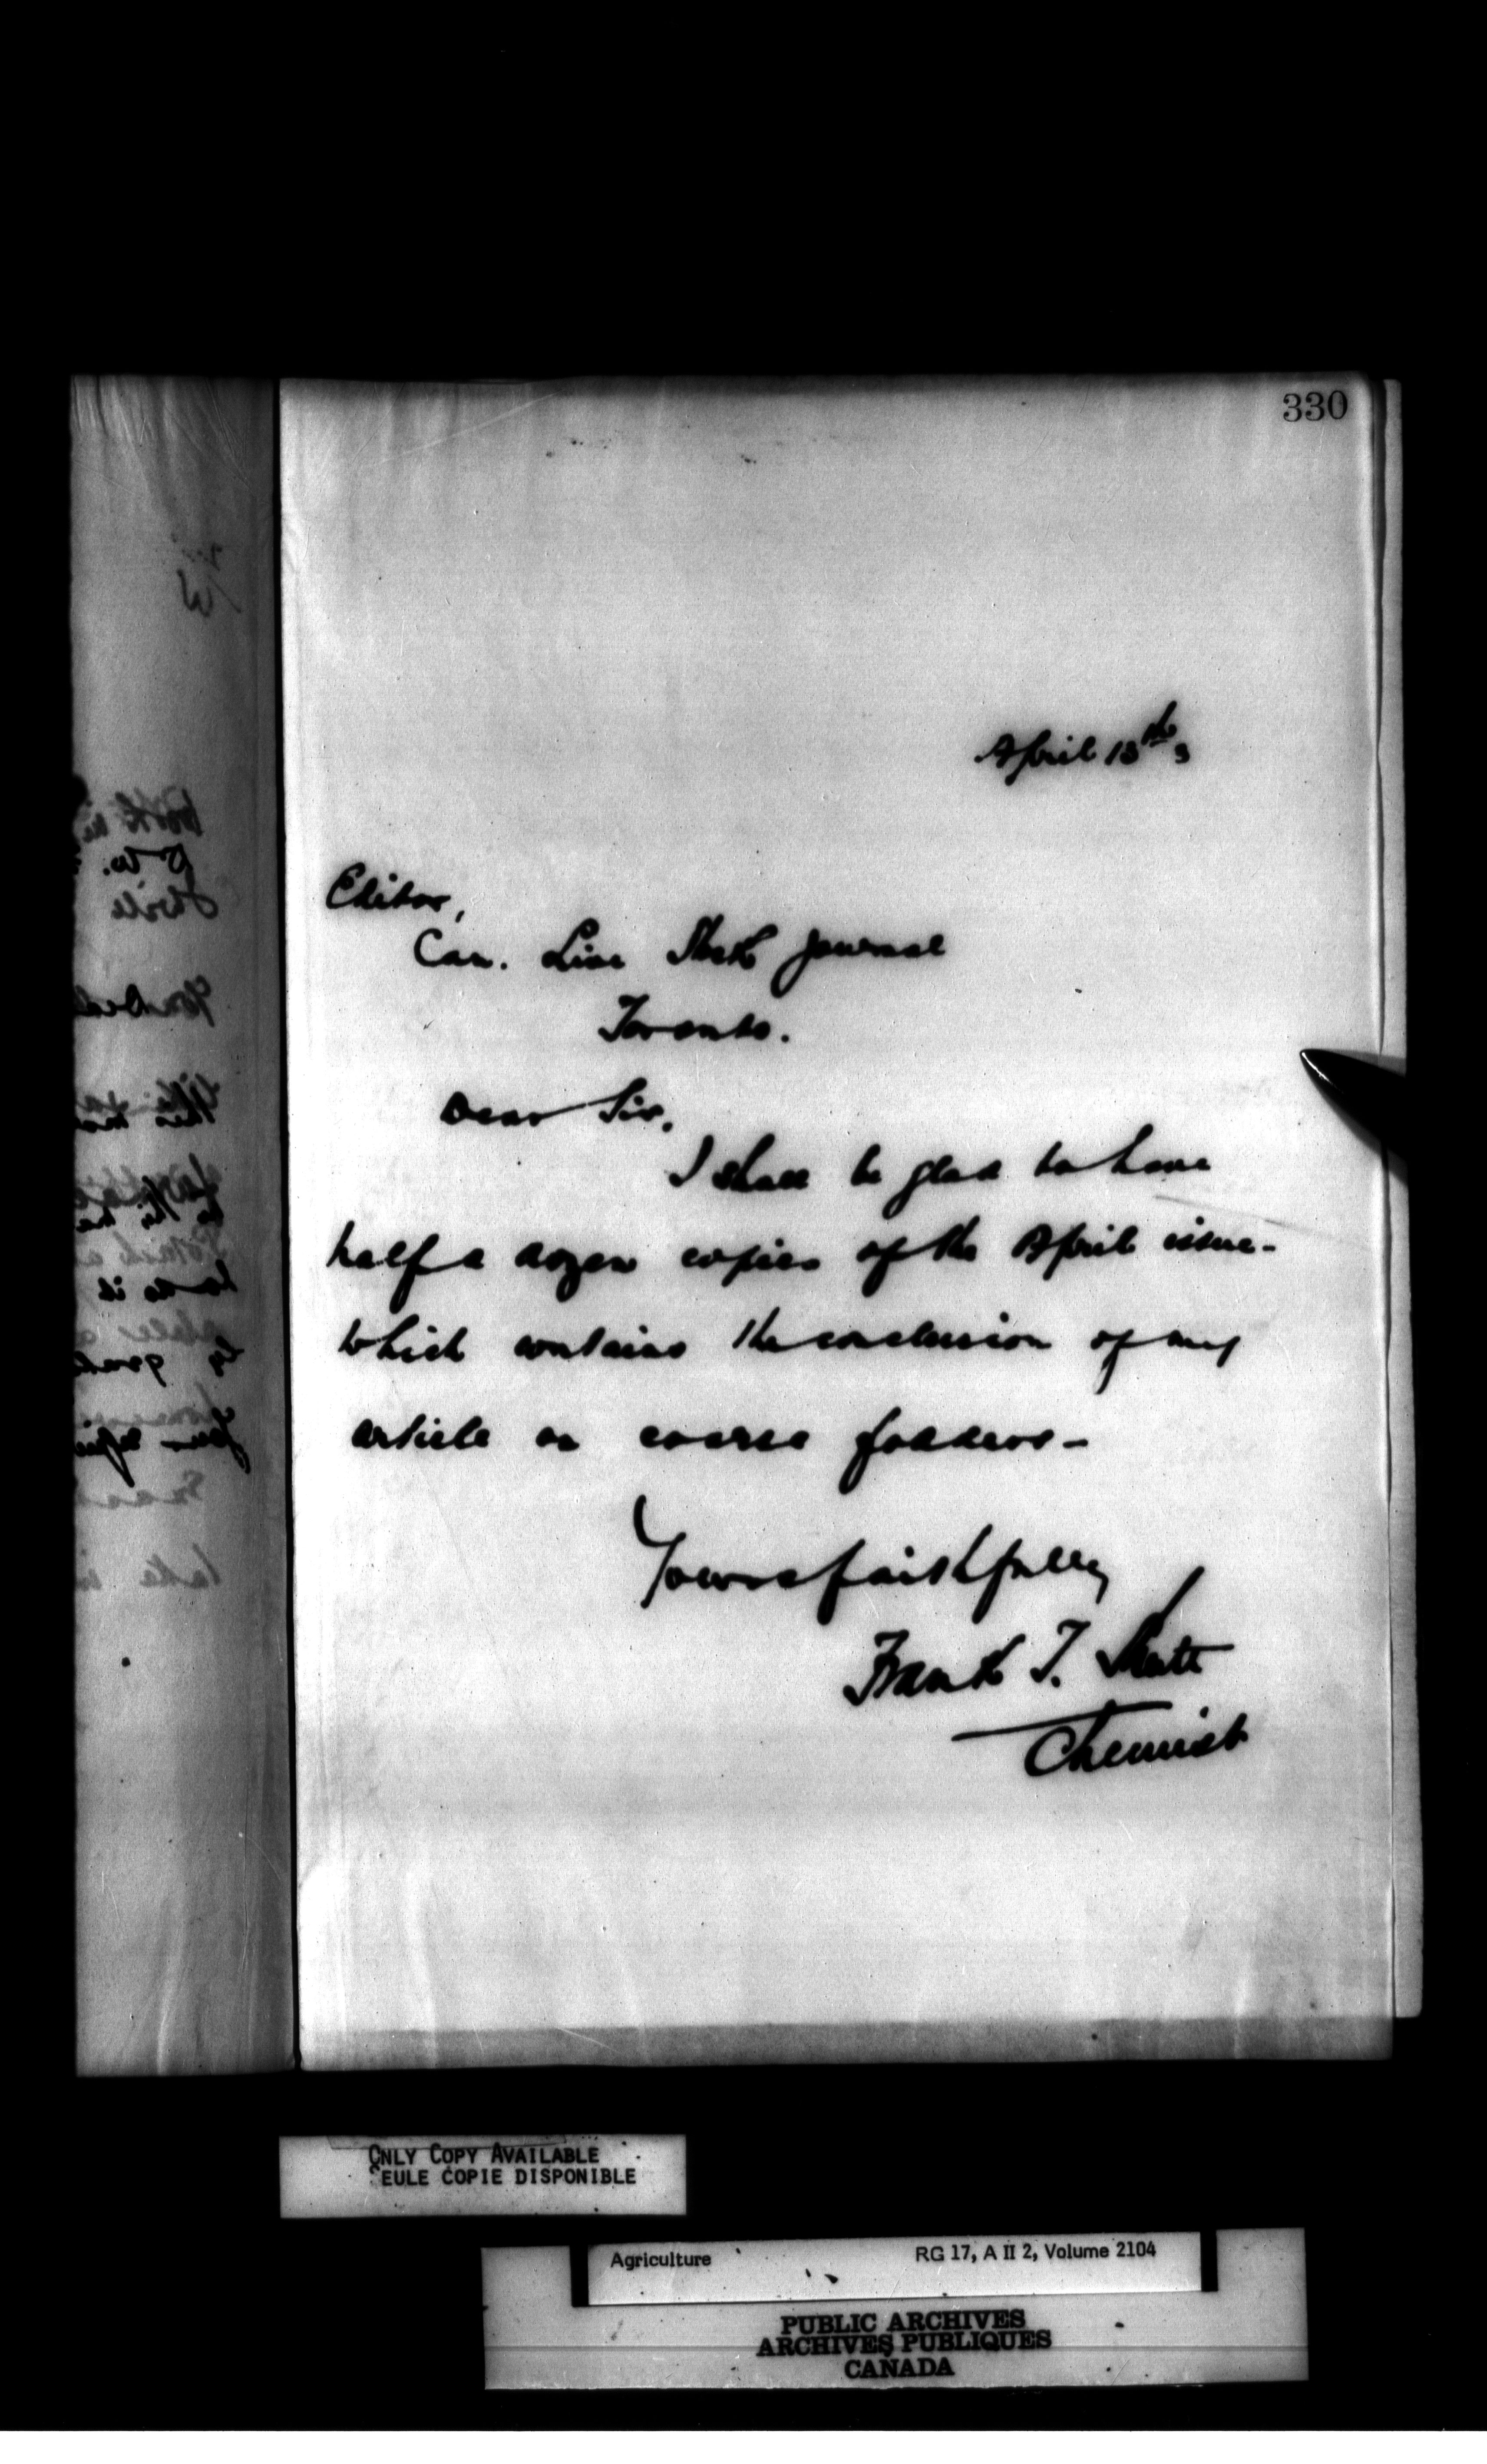 330
April 13th 3
Editor,
Can. Live Stock Journal
Toronto.
Dear Sir,
I shall be glad to have
half a dozen copies of the April issue-
which contains the conclusion of my
article on coarse fodders-
Yours faithfully
Frank T. Shutt
Chemist
ONLY COPY AVAILABLE
SEULE COPIE DISPONIBLE
Agriculture RG 17, A II 2, Volume 2104
PUBLIC ARCHIVES
ARCHIVES PUBLIQUES
CANADA